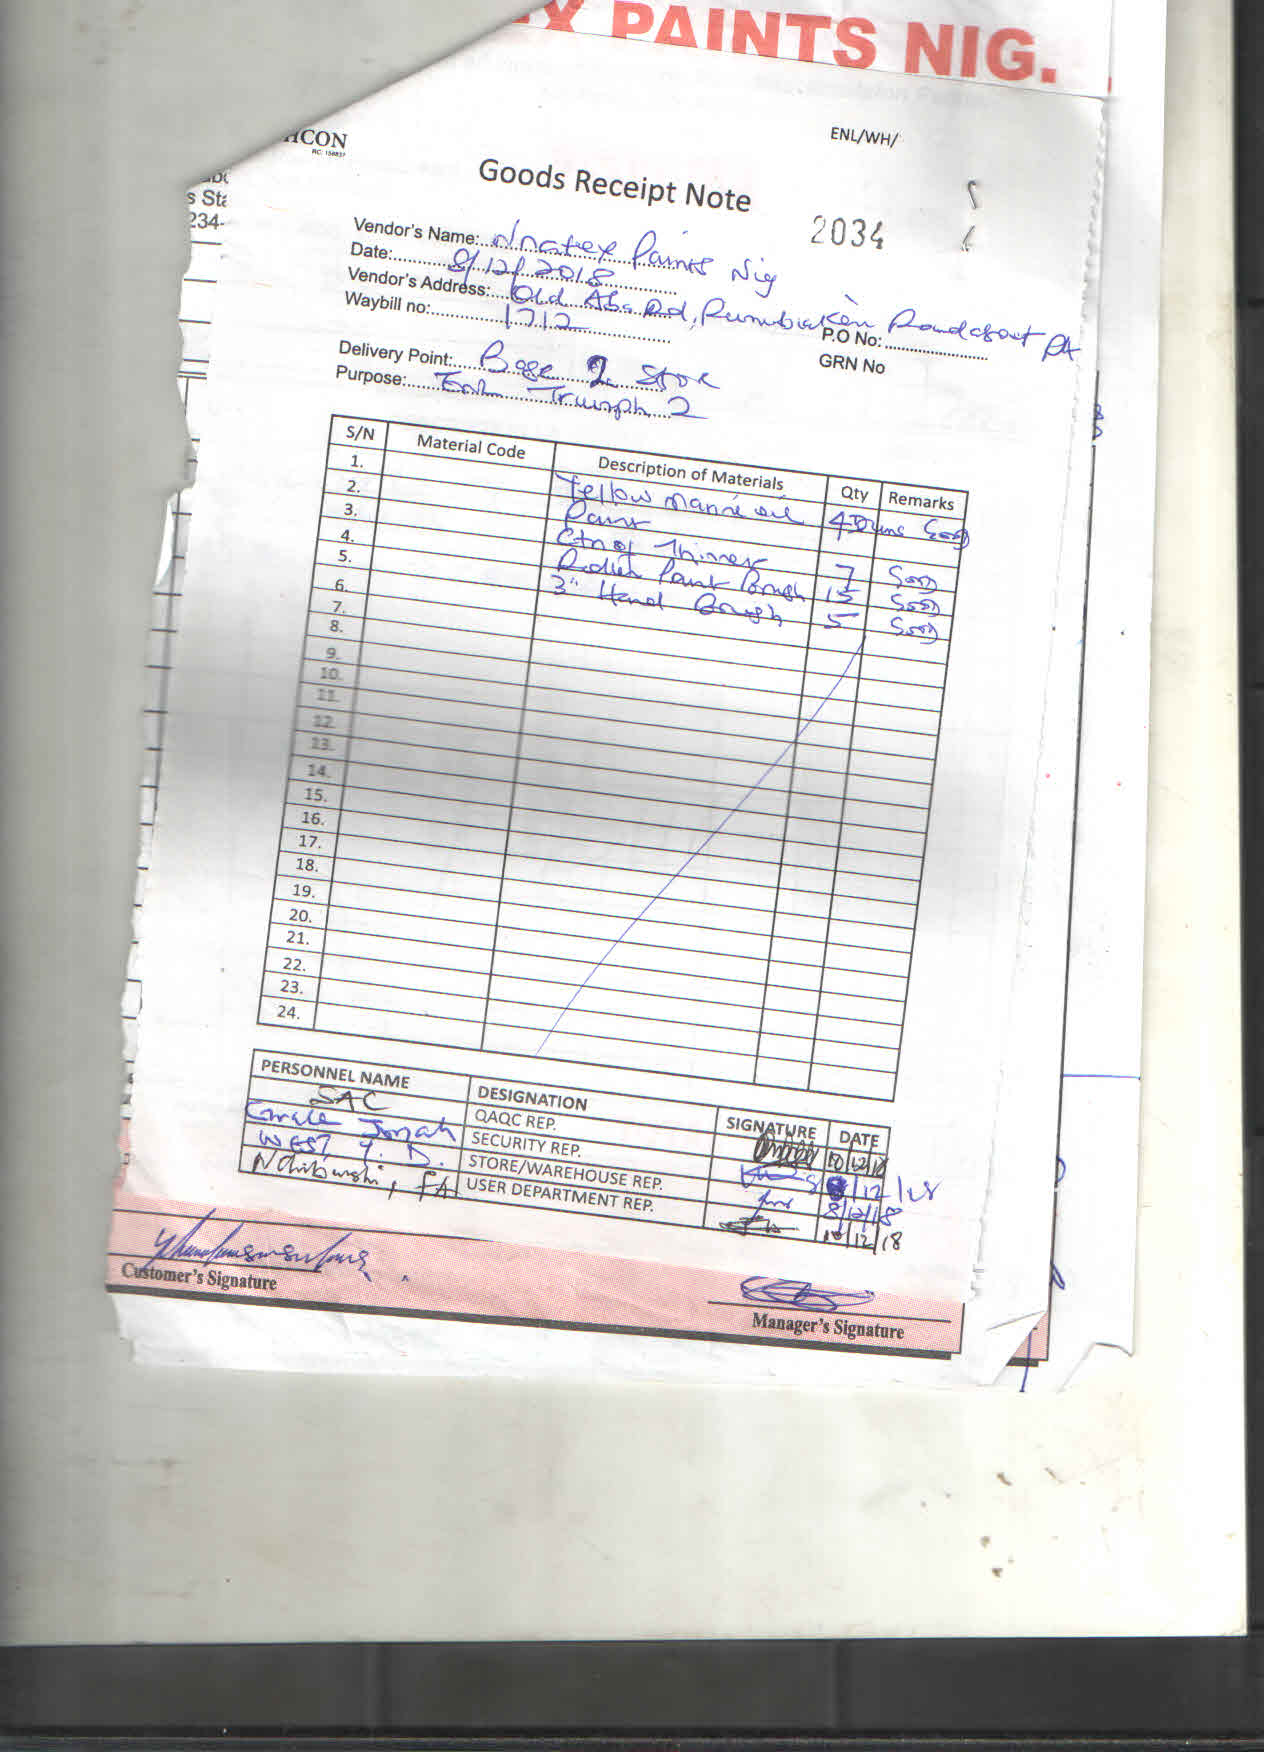 PAINTS NIG.
HCON
RC: 156837
ENL/WH/
Goods Receipt Note
2034
s Sta
234-
Vendor's Name: Nnatex Paints Nig
Date: 8/12/2018
Vendor's Address: Old Aba Rd, Rumubiaken Roundabout PH
Waybill no: 1712
P.O No:
GRN No
Delivery Point: Base 2 Store
Purpose: Triumph 2
S/N Material Code Description of Materials Qty Remarks
1. Yellow Marine oil 4 Drums Good
2. Paint
3. Ctn of Thinner 7 Good
4. Paint Brush 15 Good
5. 3" Hand Brush 5 Good
6.
7.
8.
9.
10.
11.
12.
13.
14.
15.
16.
17.
18.
19.
20.
21.
22.
23.
24.
PERSONNEL NAME DESIGNATION SIGNATURE DATE
SAC QAQC REP. 10/12/18
Jonah SECURITY REP. 8/12/18
WEST T. D. STORE/WAREHOUSE REP. 8/12/18
USER DEPARTMENT REP. 10/12/18
Customer's Signature
Manager's Signature